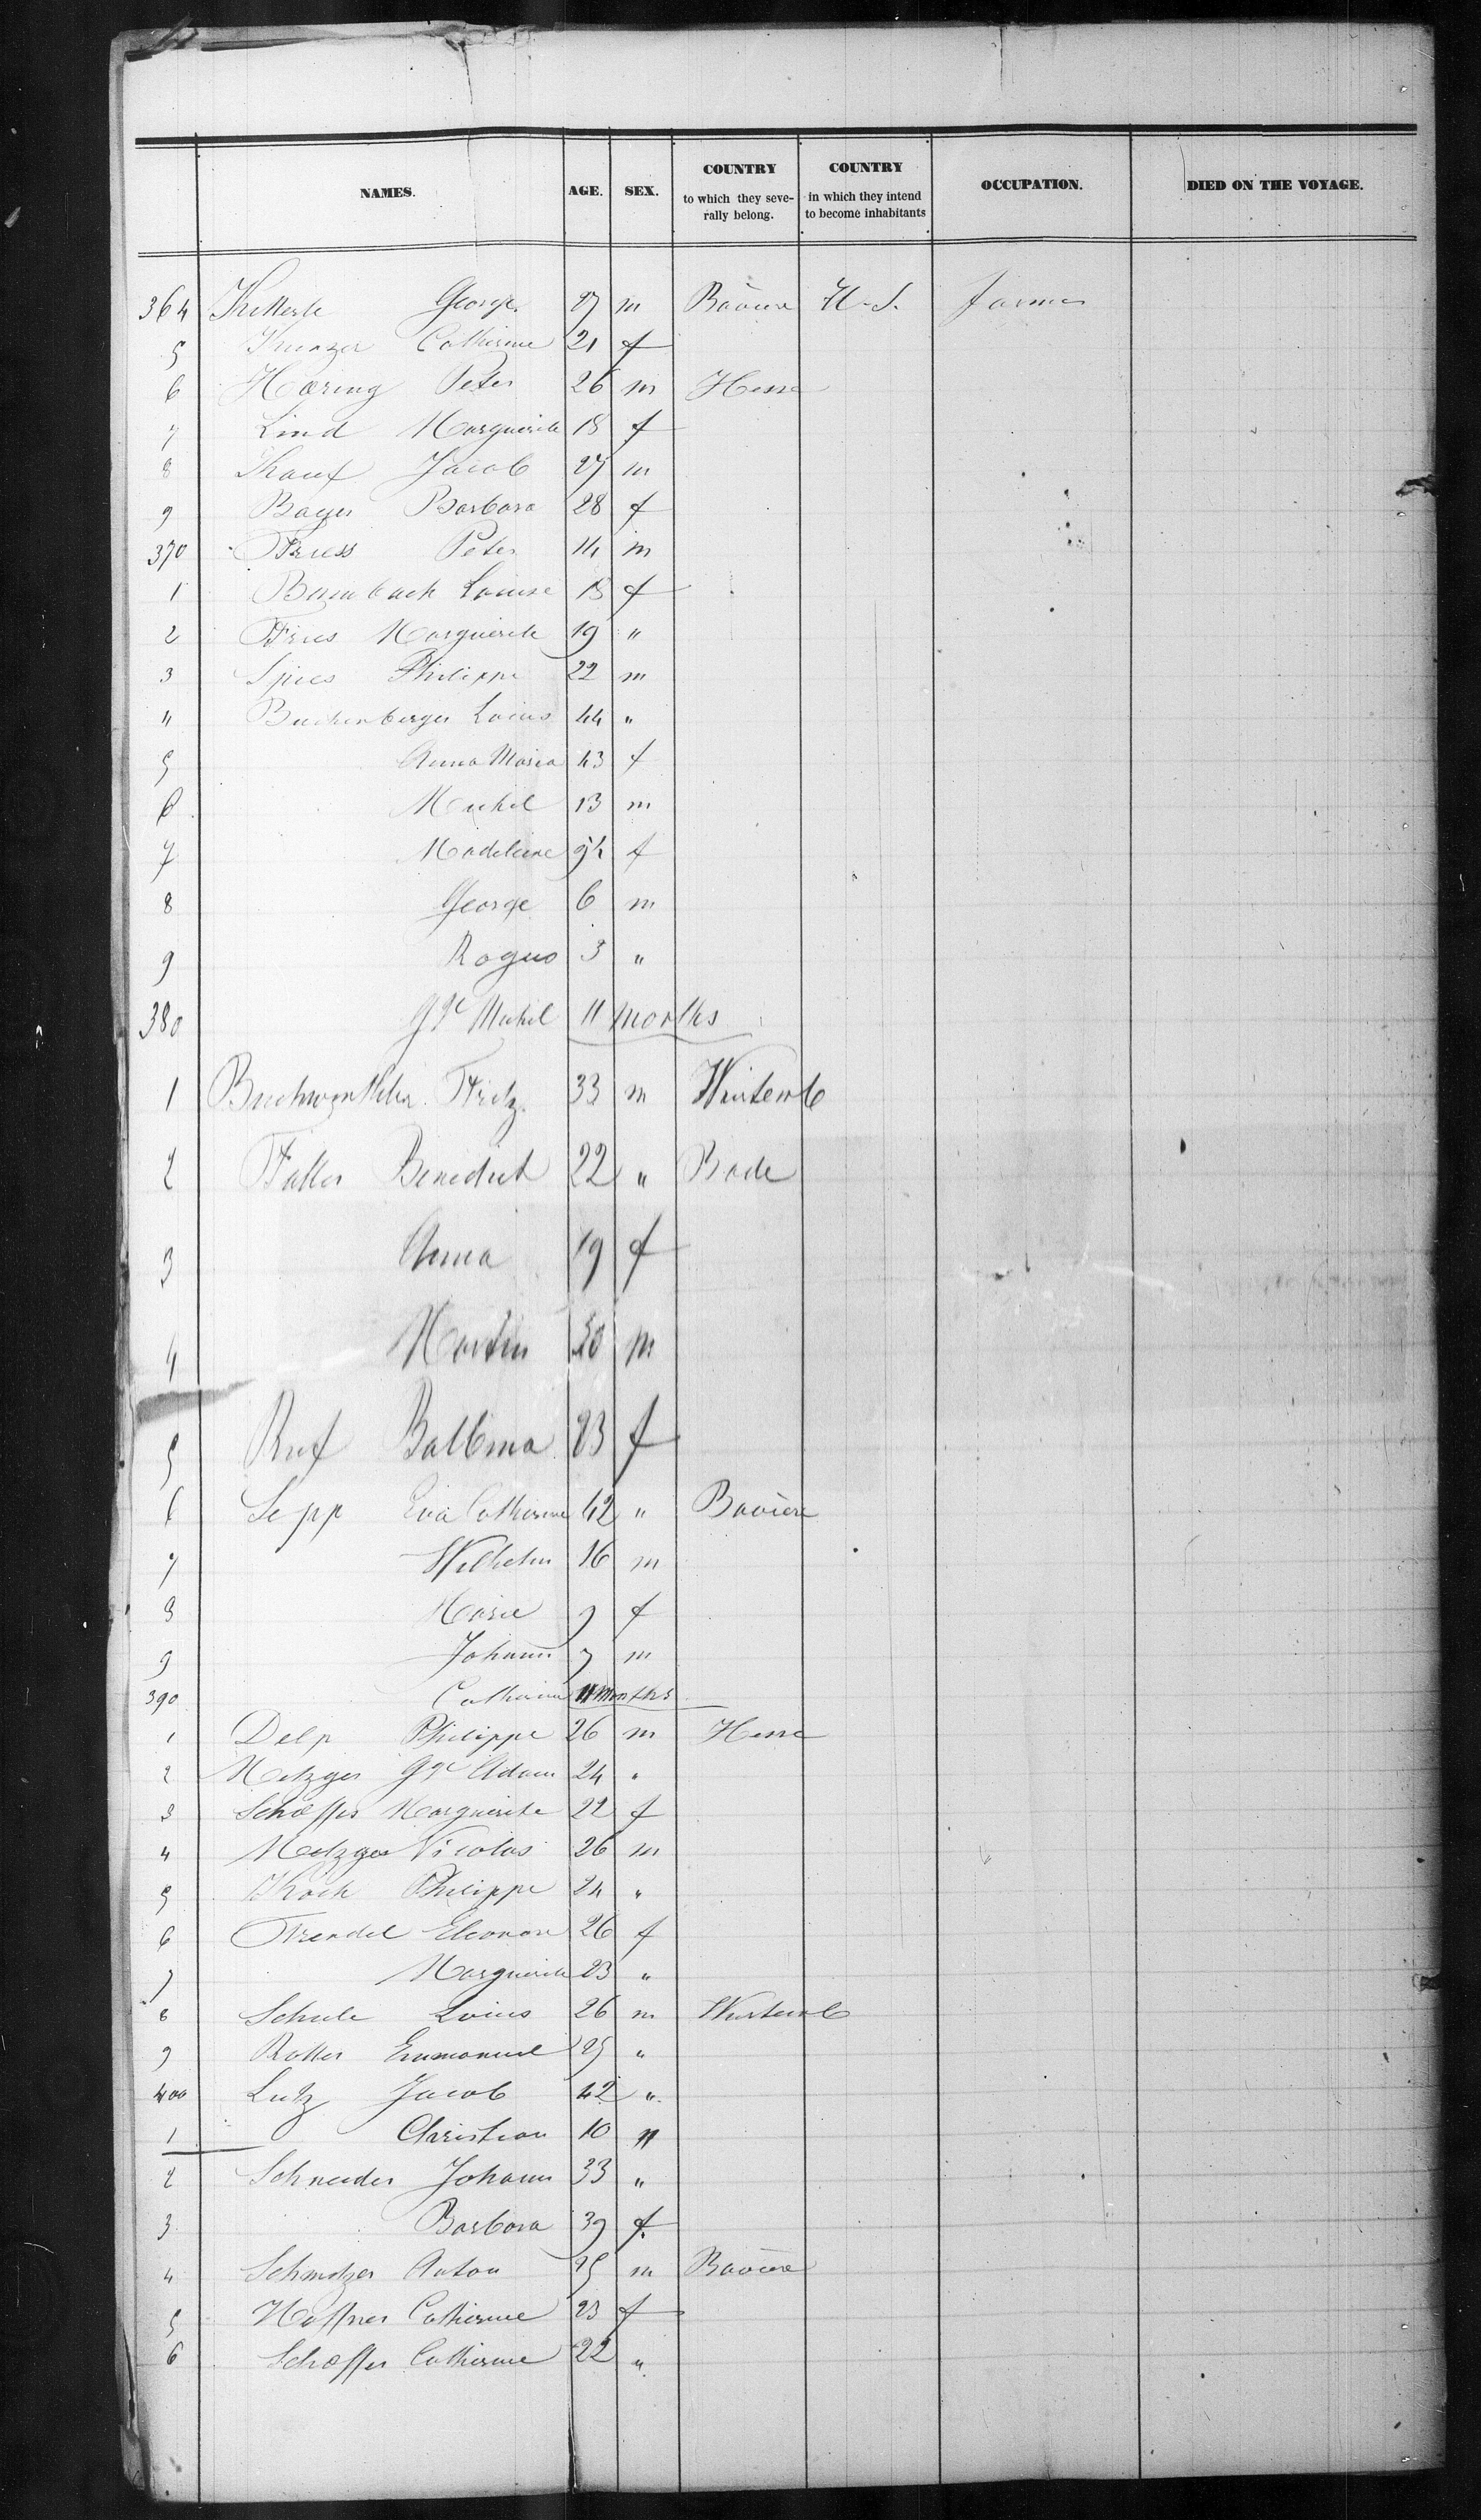 NAMES. AGE. SEX. COUNTRY to which they severally belong. COUNTRY in which they intend to become inhabitants OCCUPATION. DIED ON THE VOYAGE.
364 George 27 m Baviere U.S. farmer
5 Catherine 21 f
6 Haring Peter 26 m Hesse
7 Lind Marguerite 18 f
8 Jacob 27 m
9 Bayer Barbara 28 f
370 Friess Peter 14 m
1 Bambach Louise 18 f
2 Fries Marguerite 19 "
3 Spies Philippe 22 m
4 Buchenberger Louis 44 "
5 Anna Maria 43 f
6 Michel 13 m
7 Madeleine f
8 George 6 m
9 3 "
380 Gge Michel 11 months
1 Fritz 33 m Wurtemb
2 Faller Benedict 22 " Bade
3 Anna 19 f
4 Martin 20 m
5 Ruf Balbina 23 f
6 Sepp Eva Catherine 42 " Baviere
7 Wilhelm 16 m
8 Marie 9 f
9 Johann 7 m
390 Catherine 11 months
1 Delp Philippe 26 m Hesse
2 Metzger Gge Adam 24 "
3 Schaffer Marguerite 22 f
4 Metzger Nicolas 26 m
5 Koch Philippe 24 "
6 Frendel Eleonore 26 f
7 Marguerite 23 "
8 Schule Louis 26 m Wurtemb
9 Rotter Emmanuel 25 "
400 Lutz Jacob 42 "
1 Christian 10 "
2 Schneider Johann 33 "
3 Barbara 39 f.
4 Schmotzer Anton 25 m Baviere
5 Haffner Catherine 23 f
6 Schaffer Catherine 22 "